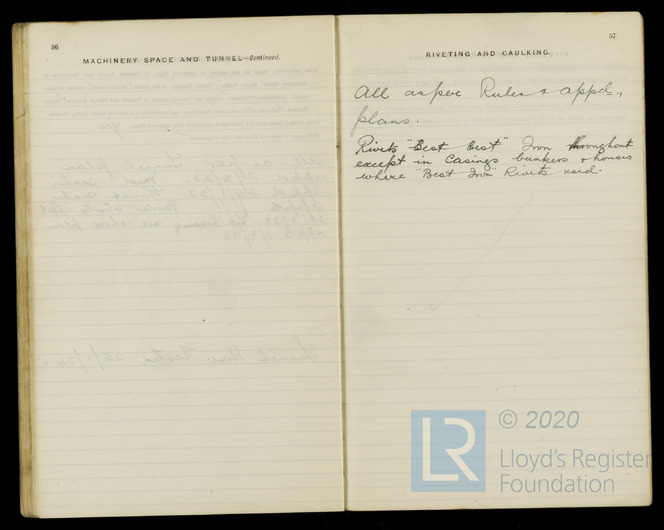 56
MACHINERY SPACE AND TUNNEL—Continued.
57
RIVETING AND CAULKING.
All as per Rules & appd
plans.
Rivets "Best Best" Iron throughout
except in Casings bunkers & houses
where "Best Iron" Rivets used.
LR
© 2020
Lloyd's Register
Foundation